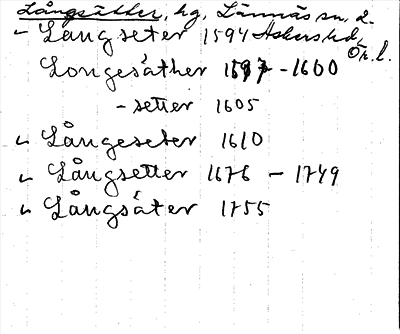 Långsätter, hg, Lännäs sn, 2.
~ Langseter 1594 Askers hd,
Ör. l.
Longesäther 1597 - 1600
- setter 1605
~ Långeseter 1610
~ Långsetter 1676 - 1749
~ Långsäter 1755